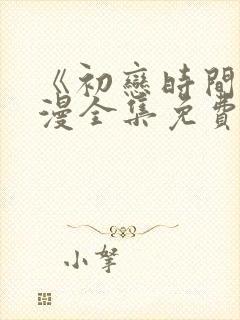 《初戀時間
漫全集免費
小拏